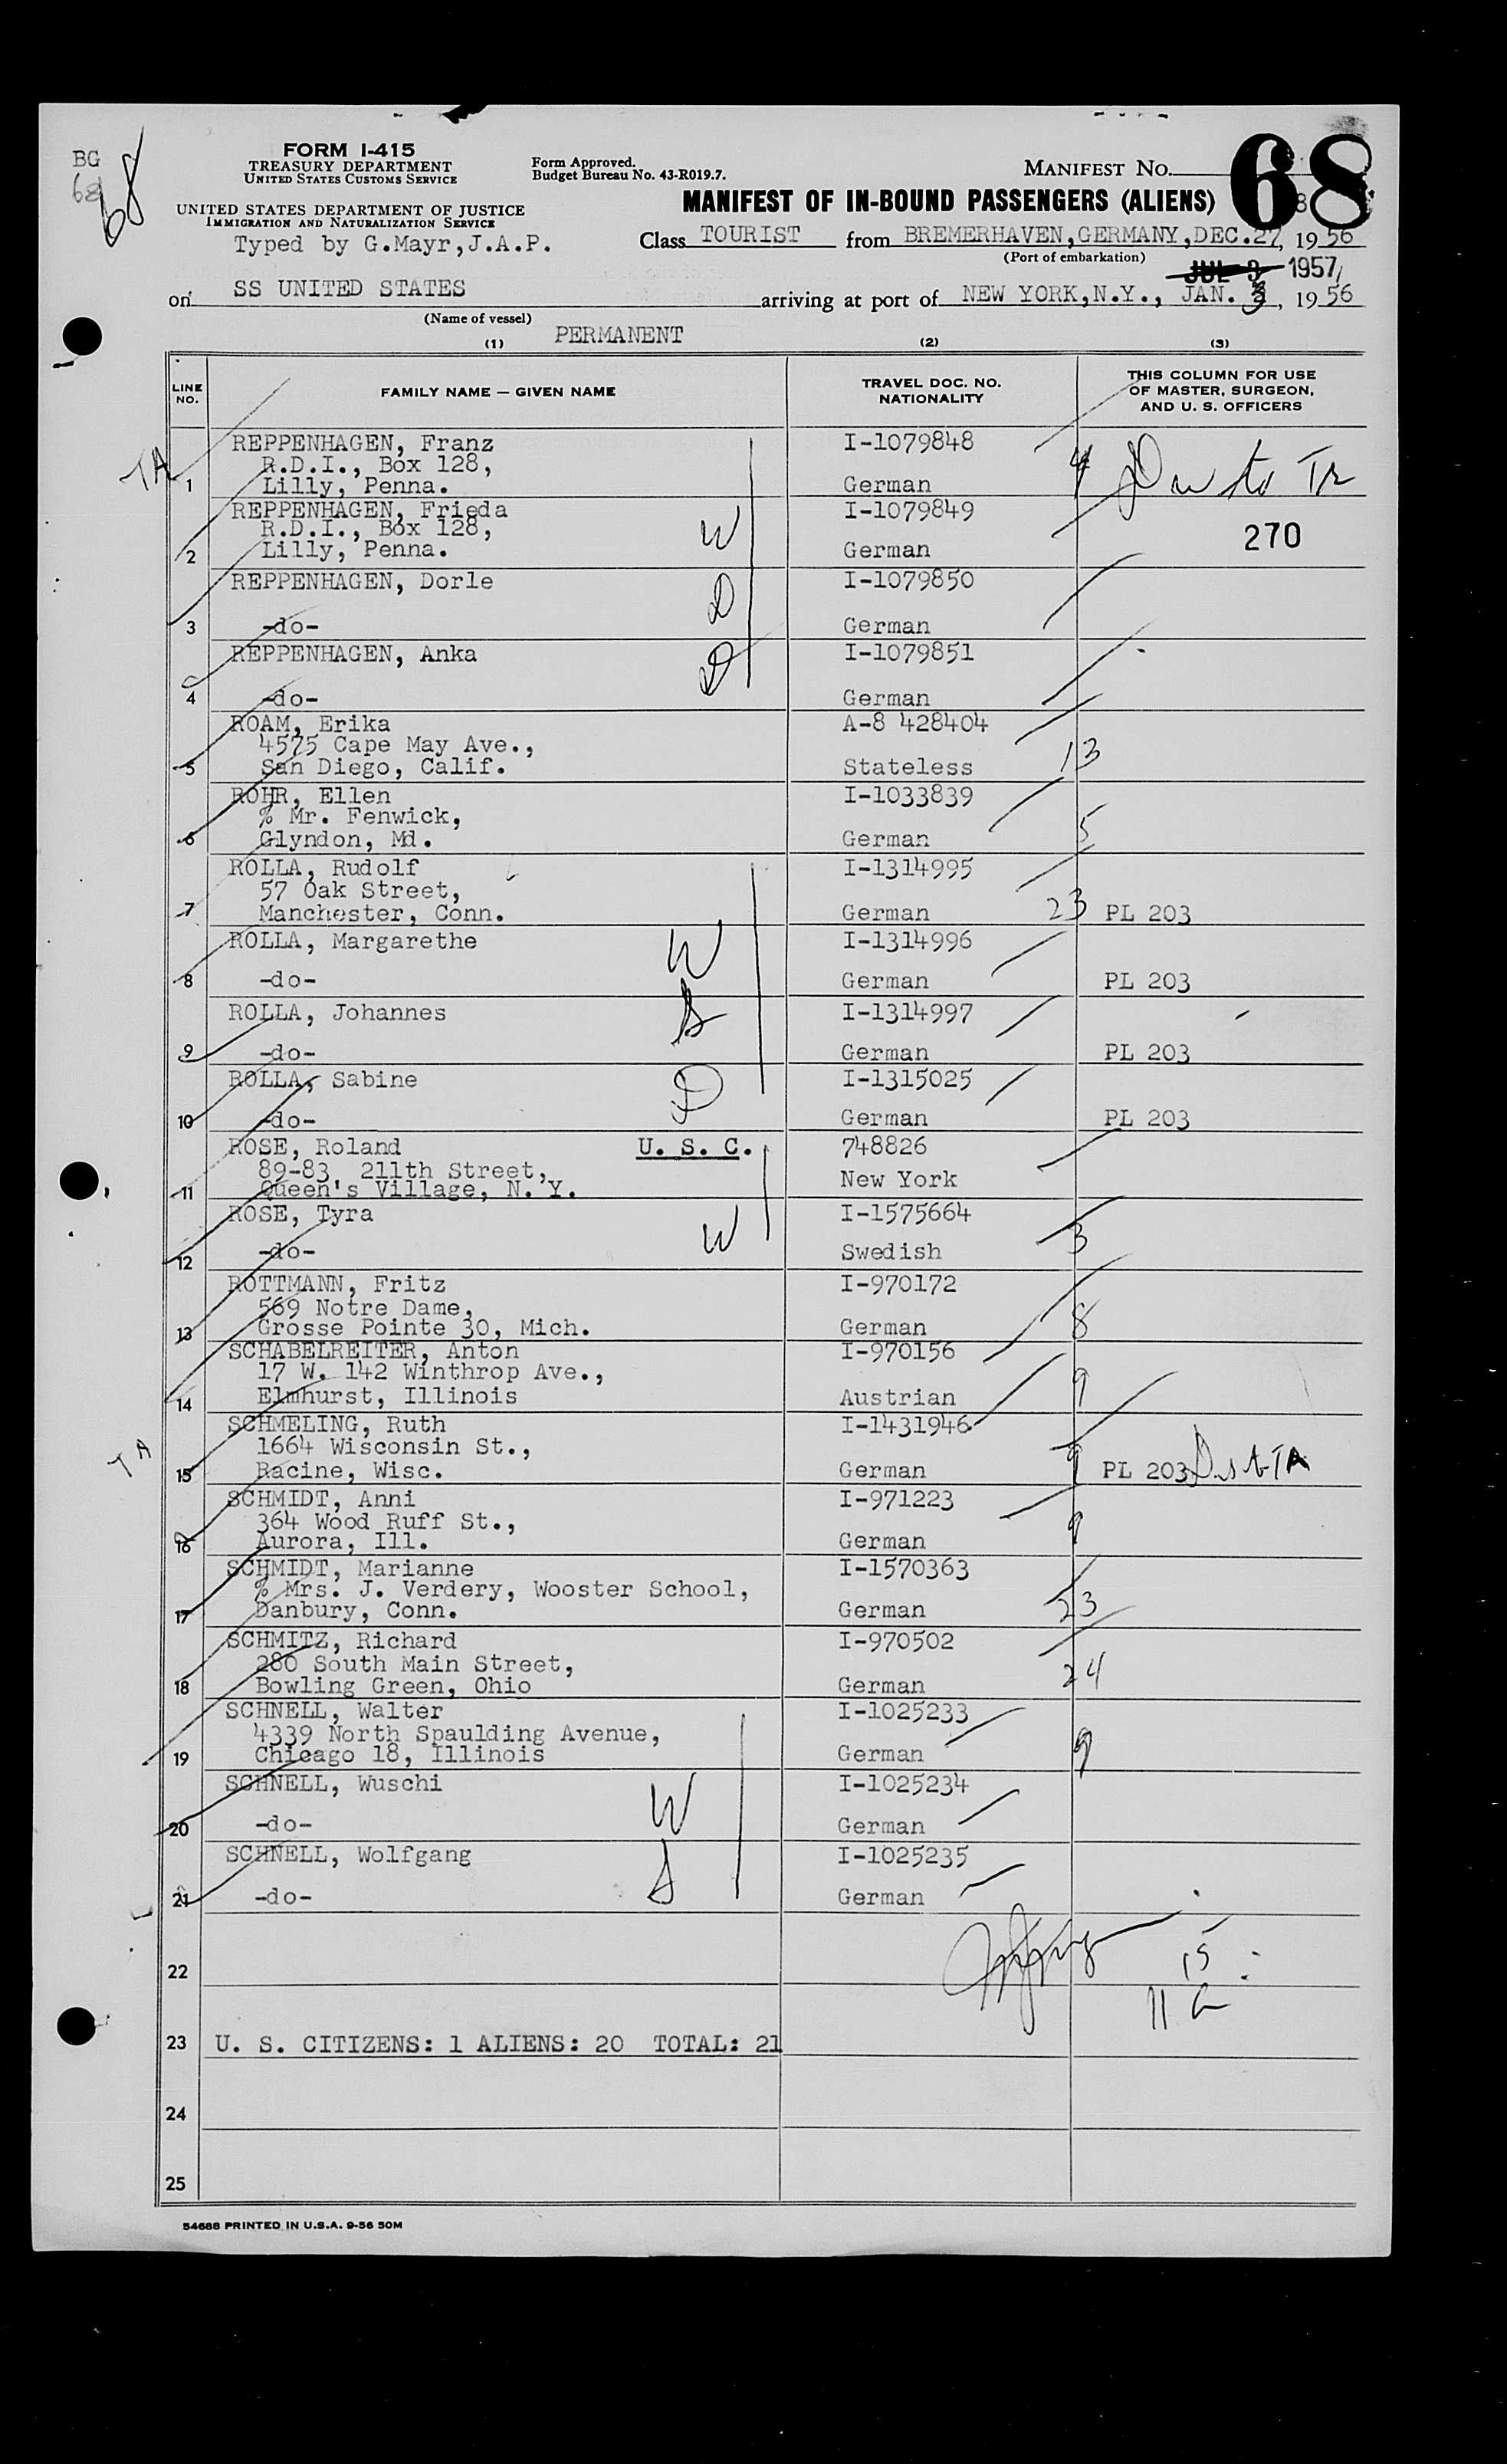 BG
68
68
FORM I-415
TREASURY DEPARTMENT
UNITED STATES CUSTOMS SERVICE
Form Approved.
Budget Bureau No. 43-R019.7.
MANIFEST NO. 68
UNITED STATES DEPARTMENT OF JUSTICE
IMMIGRATION AND NATURALIZATION SERVICE
MANIFEST OF IN-BOUND PASSENGERS (ALIENS)
Typed by G.Mayr,J.A.P.
Class TOURIST from BREMERHAVEN,GERMANY,DEC.27, 1956
(Port of embarkation)
JUL 3 1957
on SS UNITED STATES arriving at port of NEW YORK,N.Y., JAN. 3, 1956
(Name of vessel)
PERMANENT
(1) (2) (3)
LINE NO. FAMILY NAME — GIVEN NAME TRAVEL DOC. NO. NATIONALITY THIS COLUMN FOR USE OF MASTER, SURGEON, AND U. S. OFFICERS
REPPENHAGEN, Franz I-1079848
TA R.D.I., Box 128,
1 Lilly, Penna. German 4
REPPENHAGEN, Frieda I-1079849
R.D.I., Box 128, W 270
2 Lilly, Penna. German
REPPENHAGEN, Dorle D I-1079850
3 -do- German
REPPENHAGEN, Anka D I-1079851
4 -do- German
ROAM, Erika A-8 428404
4575 Cape May Ave.,
5 San Diego, Calif. Stateless 13
ROHR, Ellen I-1033839
% Mr. Fenwick,
6 Glyndon, Md. German 5
ROLLA, Rudolf I-1314995
57 Oak Street,
7 Manchester, Conn. German 23 PL 203
ROLLA, Margarethe W I-1314996
8 -do- German PL 203
ROLLA, Johannes S I-1314997
9 -do- German PL 203
ROLLA, Sabine D I-1315025
10 -do- German PL 203
ROSE, Roland U. S. C. 748826
89-83 211th Street,
11 Queen's Village, N. Y. New York
ROSE, Tyra W I-1575664
12 -do- Swedish 3
ROTTMANN, Fritz I-970172
569 Notre Dame,
13 Grosse Pointe 30, Mich. German 8
SCHABELREITER, Anton I-970156
17 W. 142 Winthrop Ave.,
14 Elmhurst, Illinois Austrian 9
SCHMELING, Ruth I-1431946
TA 1664 Wisconsin St.,
15 Racine, Wisc. German 9 PL 203
SCHMIDT, Anni I-971223
364 Wood Ruff St.,
16 Aurora, Ill. German 9
SCHMIDT, Marianne I-1570363
% Mrs. J. Verdery, Wooster School,
17 Danbury, Conn. German 23
SCHMITZ, Richard I-970502
280 South Main Street,
18 Bowling Green, Ohio German 24
SCHNELL, Walter I-1025233
4339 North Spaulding Avenue,
19 Chicago 18, Illinois German 9
SCHNELL, Wuschi W I-1025234
20 -do- German
SCHNELL, Wolfgang S I-1025235
21 -do- German
22 15
11
23 U. S. CITIZENS: 1 ALIENS: 20 TOTAL: 21
24
25
54688 PRINTED IN U.S.A. 9-56 50M